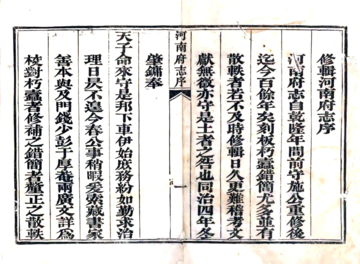 修輯河南府志序
河南府志自乾隆年間前守施公重修後
迄今百餘年矣刻板朽蠹錯簡尤多並有
散軼者若不及時修輯日久更難稽考文
獻無徵亦守是土者之咎也同治四年冬
肇鏞奉
天子命來守是邦下車伊始庶務紛如勤求治
理日昃不遑今春公事稍暇爰索藏書家
善本與及門錢少彭于厚菴兩廣文詳為
校對朽蠹者修補之錯簡者釐正之散軼
河南府志序
一